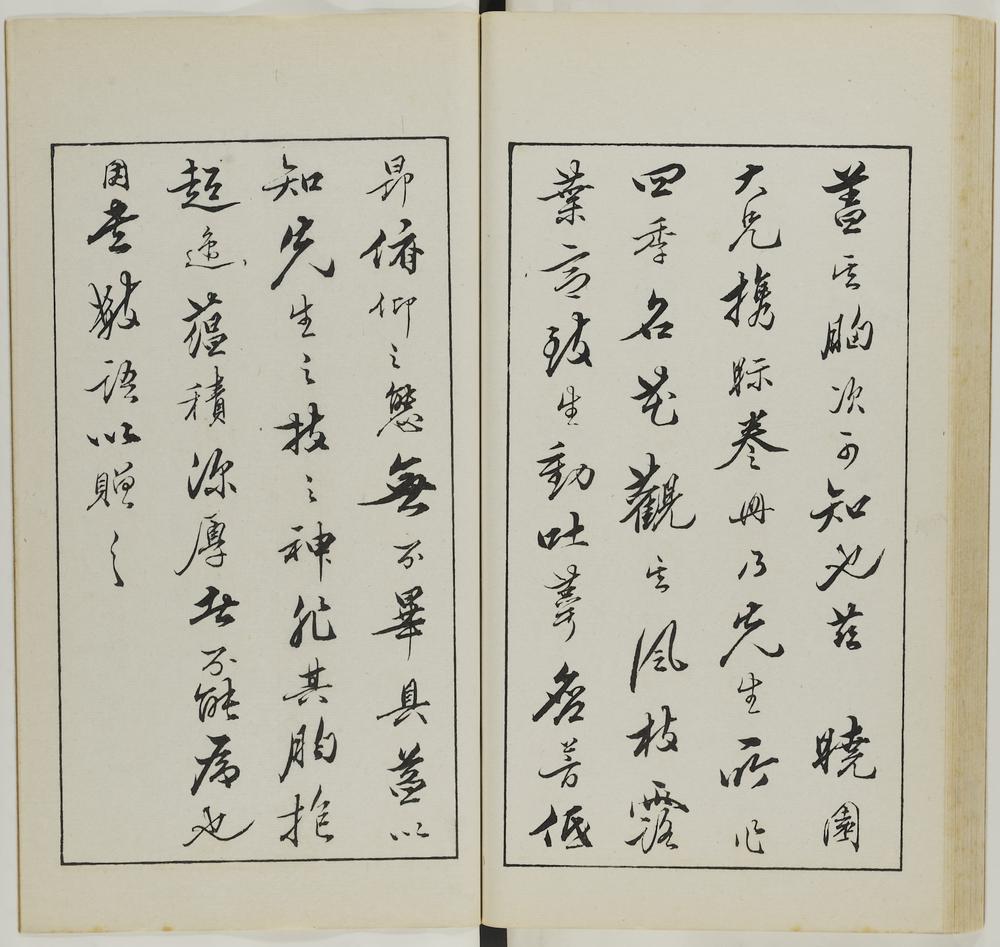 蓋其胸次可知也茲 曉園
大兄攜眎卷冊乃先生所作
四季名花觀其風枝露
葉意致生動吐萼含萼低
昂俯仰之態無不畢具益以
知先生之技之神非其胸抱
超逸蘊積深厚者不能為也
因書數語以贈之